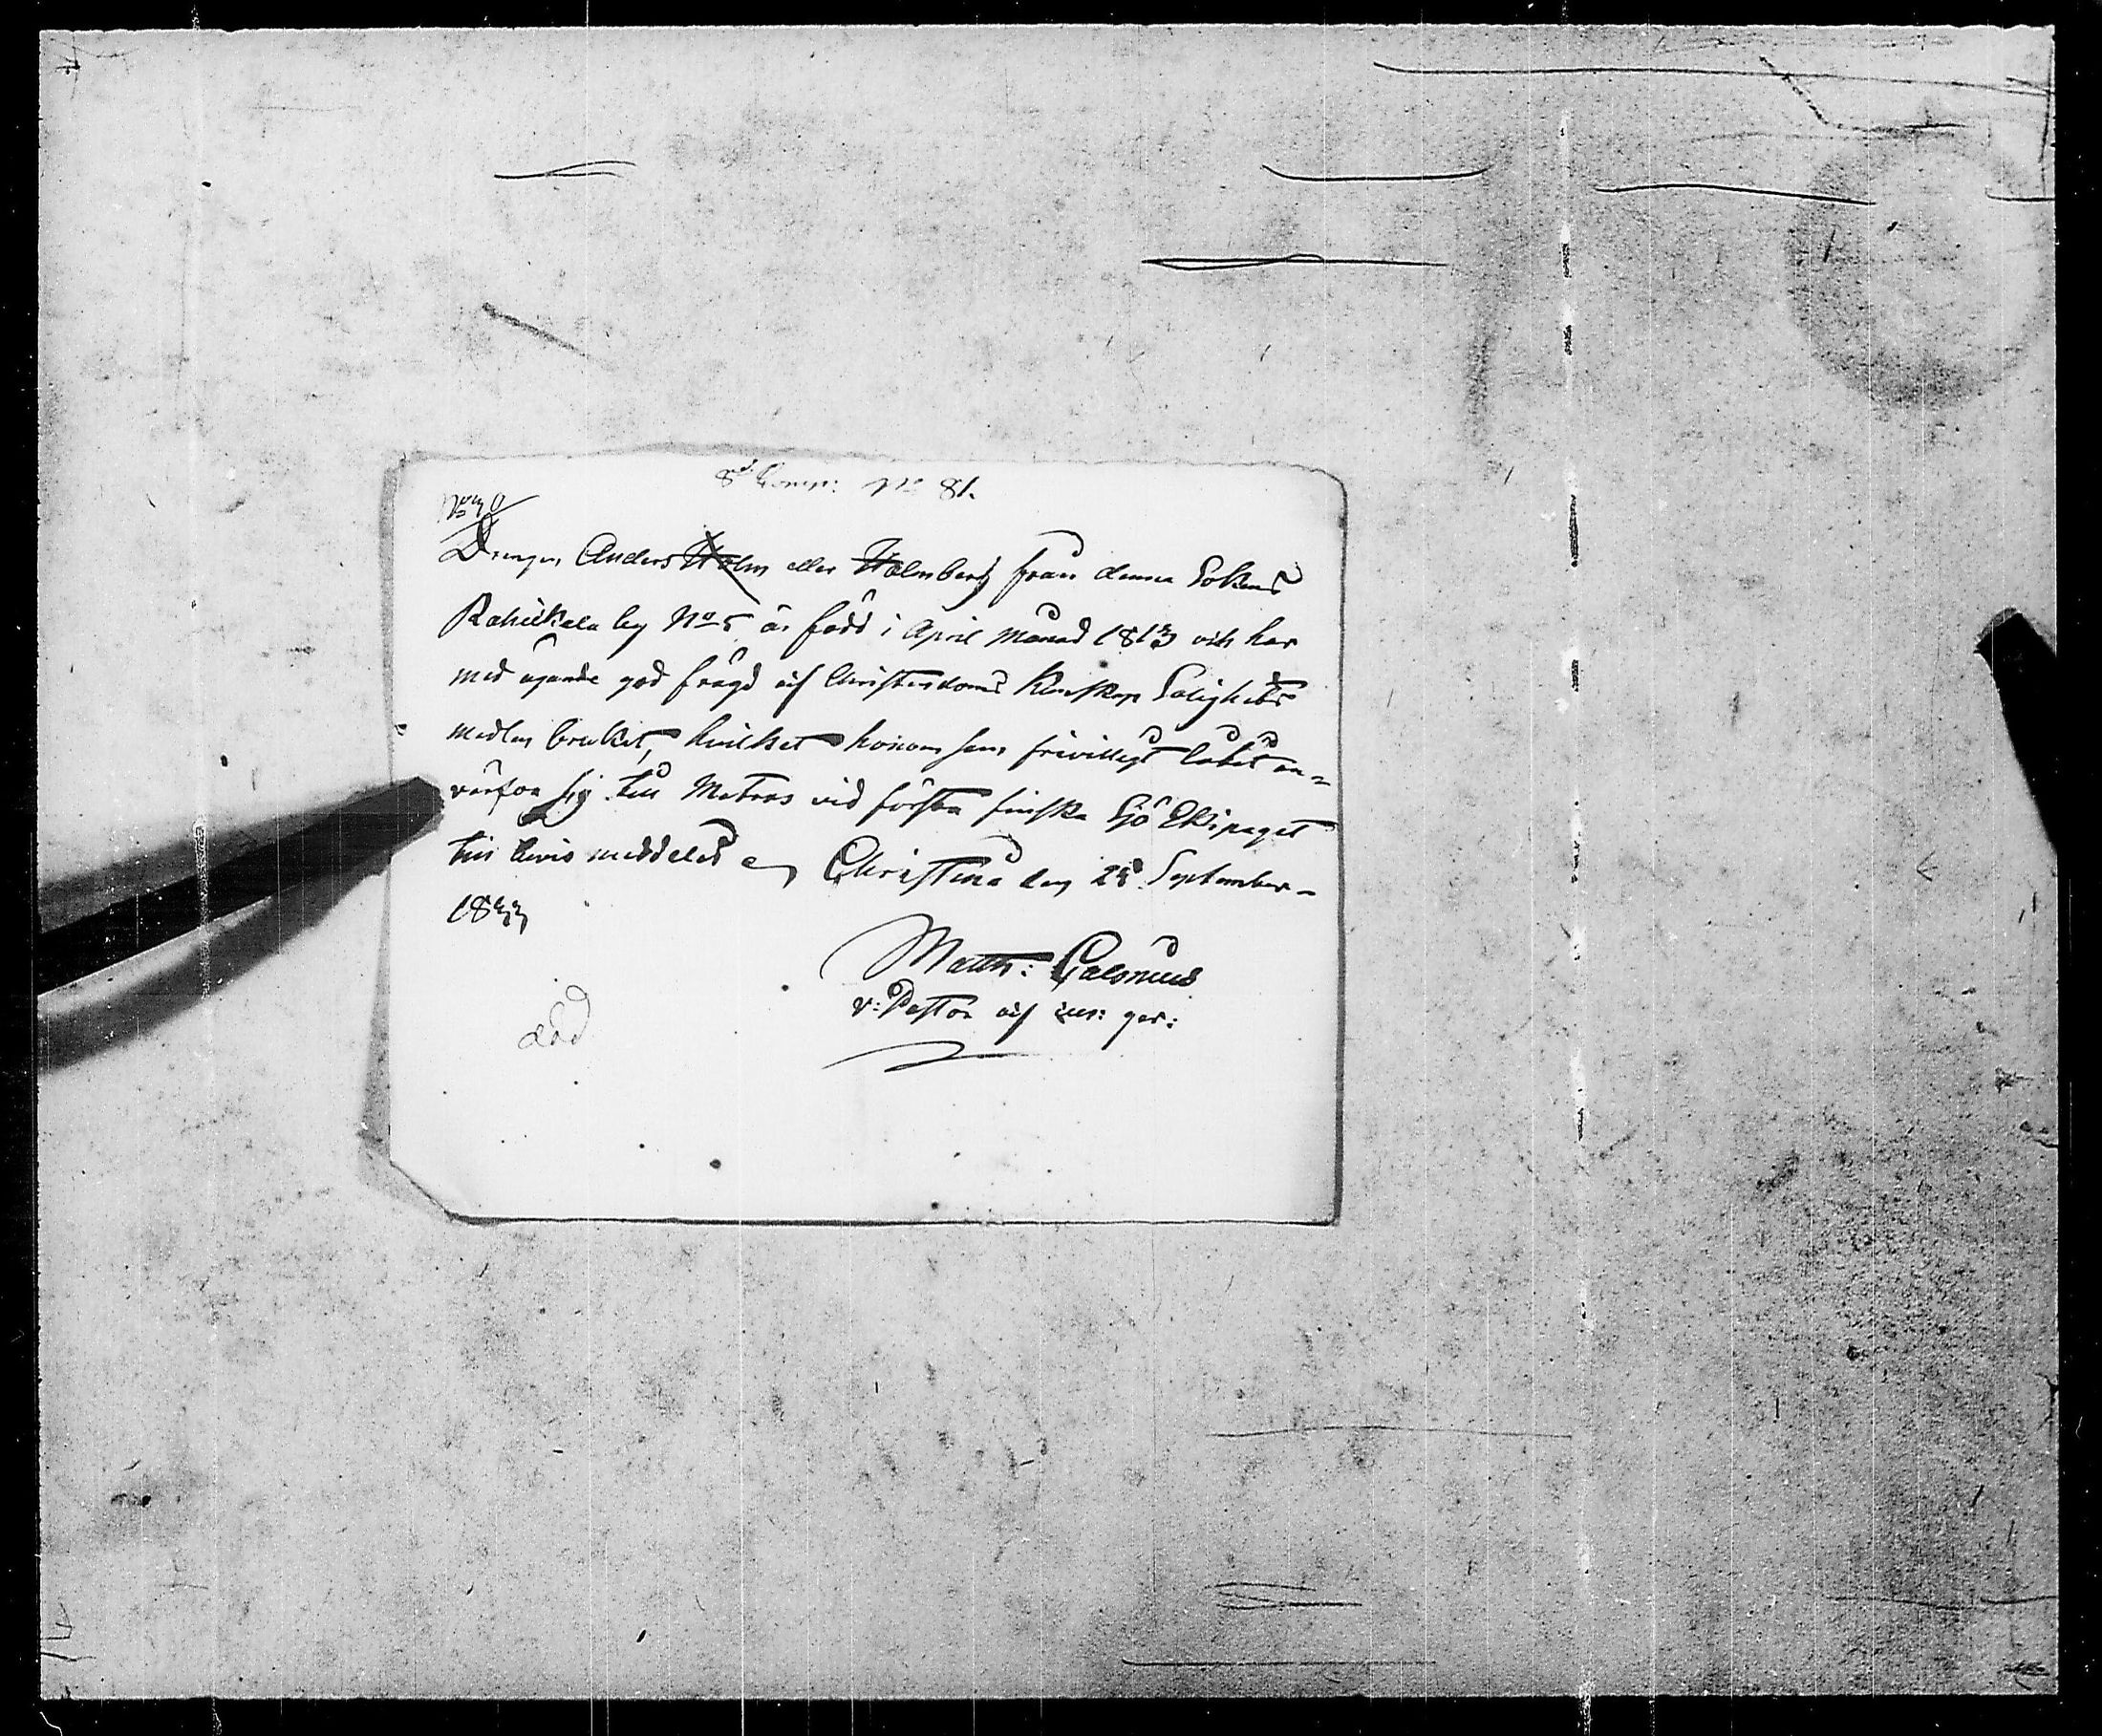 8 Comp: No 81.
Drengen Anders Holm eller Holmberg från denna Sokens
Rahikkala by No 5 är född i April månad 1813 och har
med ägande god frägd af Christendoms Kunskap Salighets
medlen brukat, hvilket honom som frivilligt låtit an-
värfva sig till Matros vid första finska Sjö Ekipaget
till bevis meddelas Christina den 28 September
1833
Matth: Calonius
v: Pastor
död